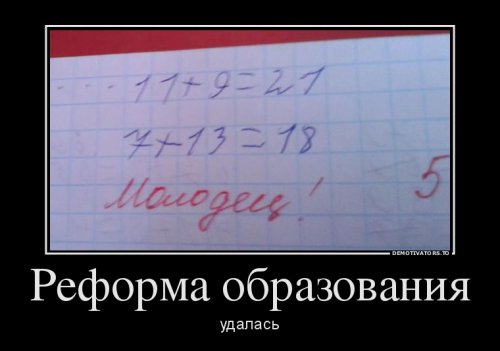 11+9=21
7+13=18
Молодец! 5
DEMOTIVATORS.TO
Реформа образования
удалась